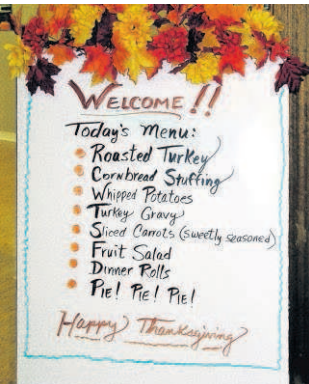 WELCOME!!
Today's Menu:
Roasted Turkey
Cornbread Stuffing
Whipped Potatoes
Turkey Gravy
Sliced Carrots (sweetly seasoned)
Fruit Salad
Dinner Rolls
PIE! PIE! PIE!
Happy Thanksgiving